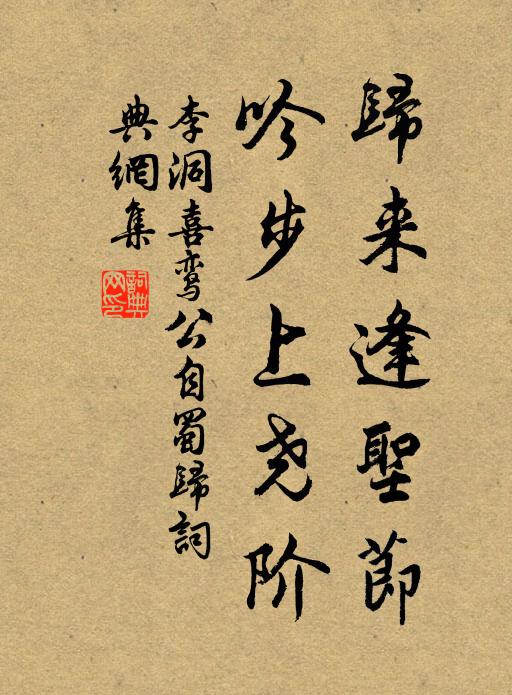 歸来逢聖節
吟步上尧阶
李洞喜鸾公自蜀歸詞
典網集
詞典网印